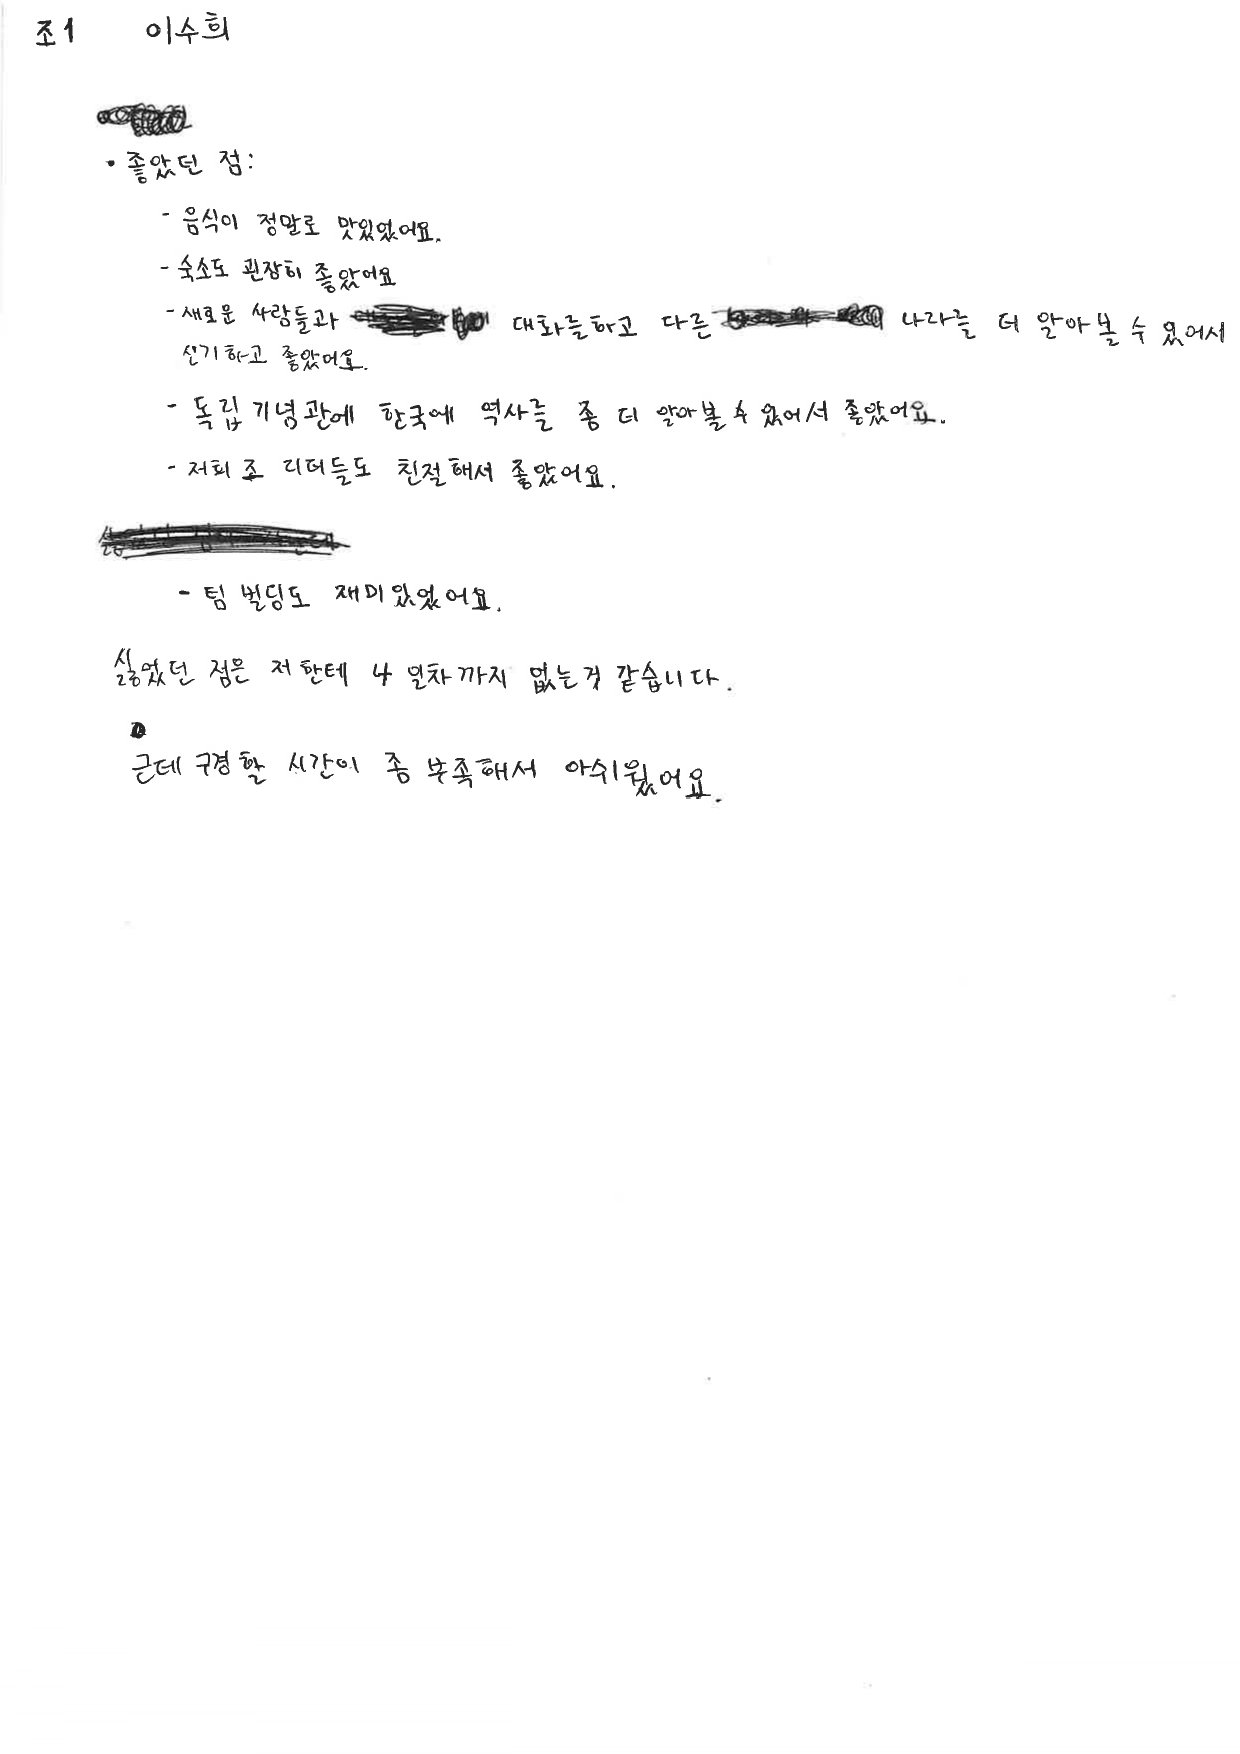 조1 이수희
• 좋았던 점:
- 음식이 정말로 맛있었어요.
- 숙소도 굉장히 좋았어요
- 새로운 사람들과 대화를하고 다른 나라를 더 알아볼 수 있어서
신기하고 좋았어요.
- 독립기념관에 한국에 역사를 좀 더 알아볼 수 있어서 좋았어요.
- 저희 조 리더들도 친절해서 좋았어요.
- 팀 벌딩도 재미있었어요.
싫었던 점은 저한테 4일차까지 없는것 같습니다.
근데 구경할 시간이 좀 부족해서 아쉬웠어요.